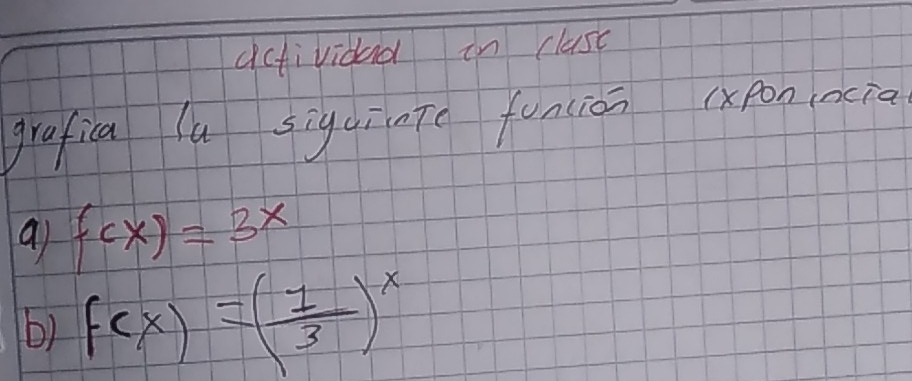 actividad en clase
grafica la siguiente función exponencial
a) f(x) = 3^x
b) f(x) = (1/3)^x